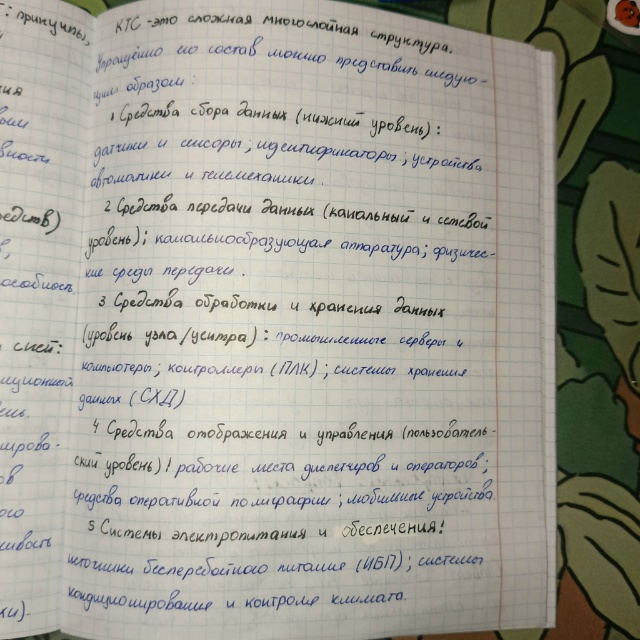 : принципы,
ния
выми
ивности
редств)
в,
особность
и сней:
ационный
ень.
широва-
ов
ого
ивость
ки).
КТС - это сложная многослойная структура.
Упрощённо его состав можно представить следую-
щим образом:
1 Средства сбора данных (нижний уровень):
датчики и сенсоры; идентификаторы; устройства
автоматики и телемеханики.
2 Средства передачи данных (канальный и сетевой
уровень); каналообразующая аппаратура; физичес-
кие среды передачи.
3 Средства обработки и хранения данных
(уровень узла/центра): промышленные серверы и
компьютеры; контроллеры (ПЛК); системы хранения
данных (СХД)
4 Средства отображения и управления (пользователь-
ский уровень)! рабочие места диспетчеров и операторов;
средства оперативной полиграфии; мобильные устройства
5 Системы электропитания и обеспечения!
источники бесперебойного питания (ИБП); системы
кондиционирования и контроля климата.